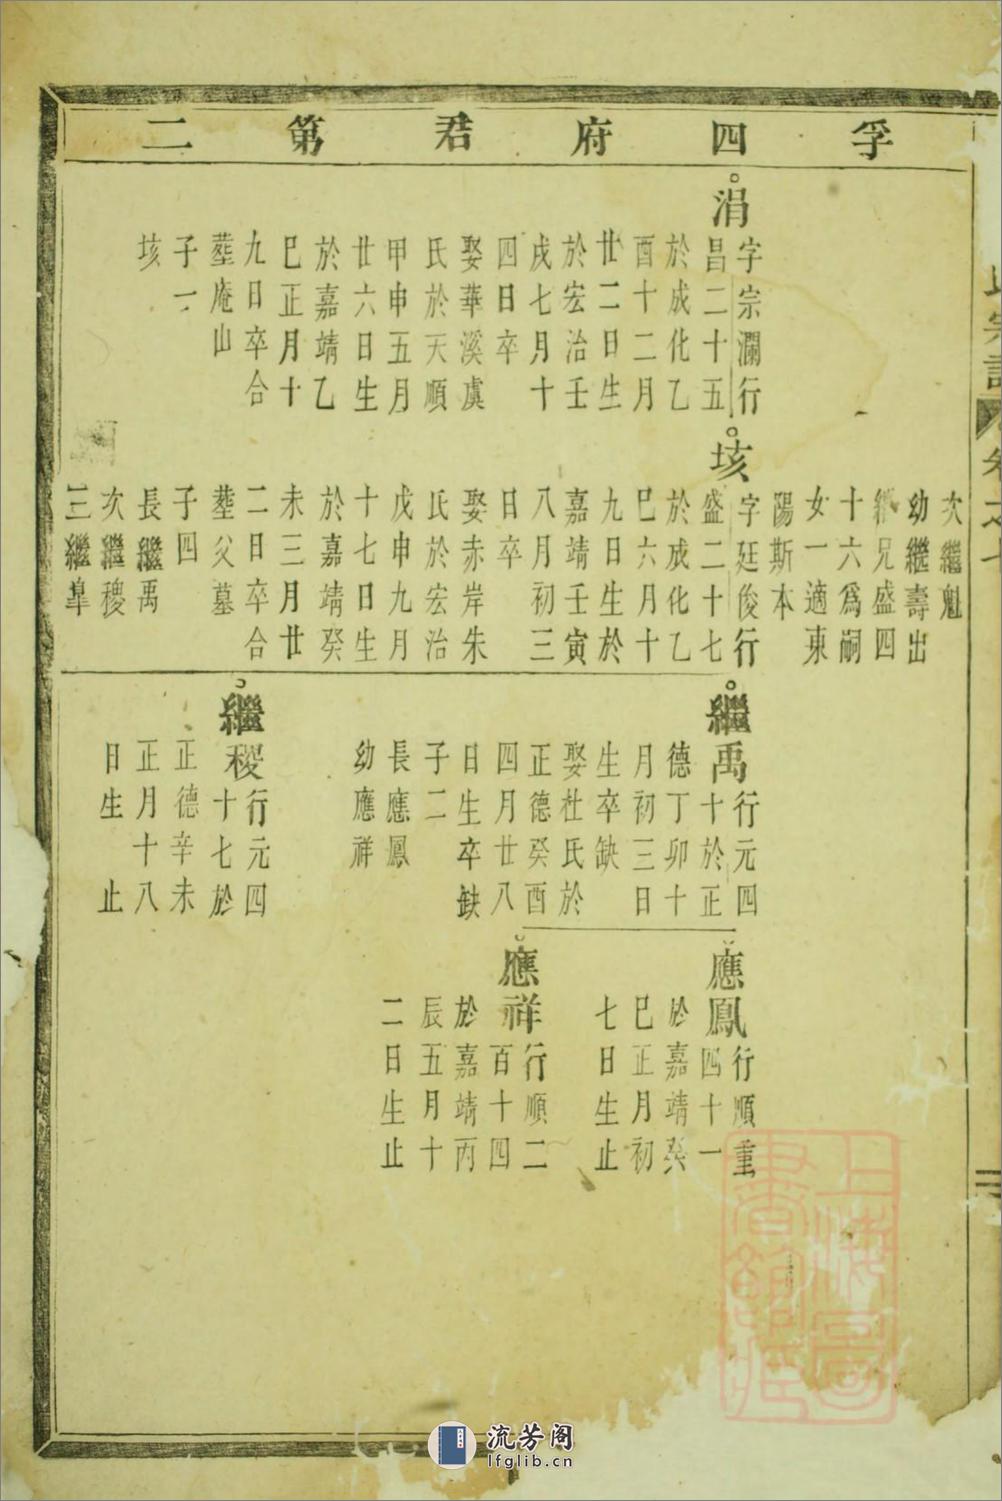 孚四府君第二
涓
字宗瀾行
昌二十五
於成化乙
酉十二月
廿二日生
於宏治壬
戌七月十
四日卒
娶華溪虞
氏於天順
甲申五月
廿六日生
於嘉靖乙
巳正月十
九日卒合
塟庵山
子一
垓
次繼魁
幼繼壽出
繼兄盛四
十六爲嗣
女一適東
陽斯本
垓
字廷俊行
盛二十七
於成化乙
巳六月十
九日生於
嘉靖壬寅
八月初三
日卒
娶赤岸朱
氏於宏治
戊申九月
十七日生
於嘉靖癸
未三月廿
二日卒合
塟父墓
子四
長繼禹
次繼稷
三繼皐
繼禹
行元四
十於正
德丁卯十
月初三日
生卒缺
娶杜氏於
正德癸酉
四月廿八
日生卒缺
子二
長應鳳
幼應祥
繼稷
行元四
十七於
正德辛未
正月十八
日生止
應鳳
行順重
四十一
於嘉靖癸
巳正月初
七日生止
應祥
行順二
百十四
於嘉靖丙
辰五月十
二日生止
氏宗譜
卷之七
上海圖
書館藏
流芳阁
lfglib.cn